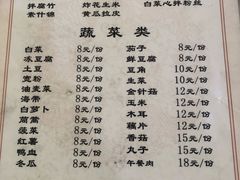 拌腐竹 炸花生米 白菜心拌粉丝
素什锦 黄瓜拉皮
蔬菜类
白菜 8元/份 茄子 8元/份
冻豆腐 8元/份 鲜豆腐 8元/份
土豆 8元/份 豆角 10元/份
宽粉 8元/份 生菜 10元/份
油麦菜 8元/份 金针菇 12元/份
海带 8元/份 玉米 12元/份
白萝卜 8元/份 木耳 12元/份
茼蒿 8元/份 藕片 12元/份
菠菜 8元/份 香菇 15元/份
红薯 8元/份 丸子 15元/份
鸭血 8元/份 午餐肉 18元/份
冬瓜 8元/份